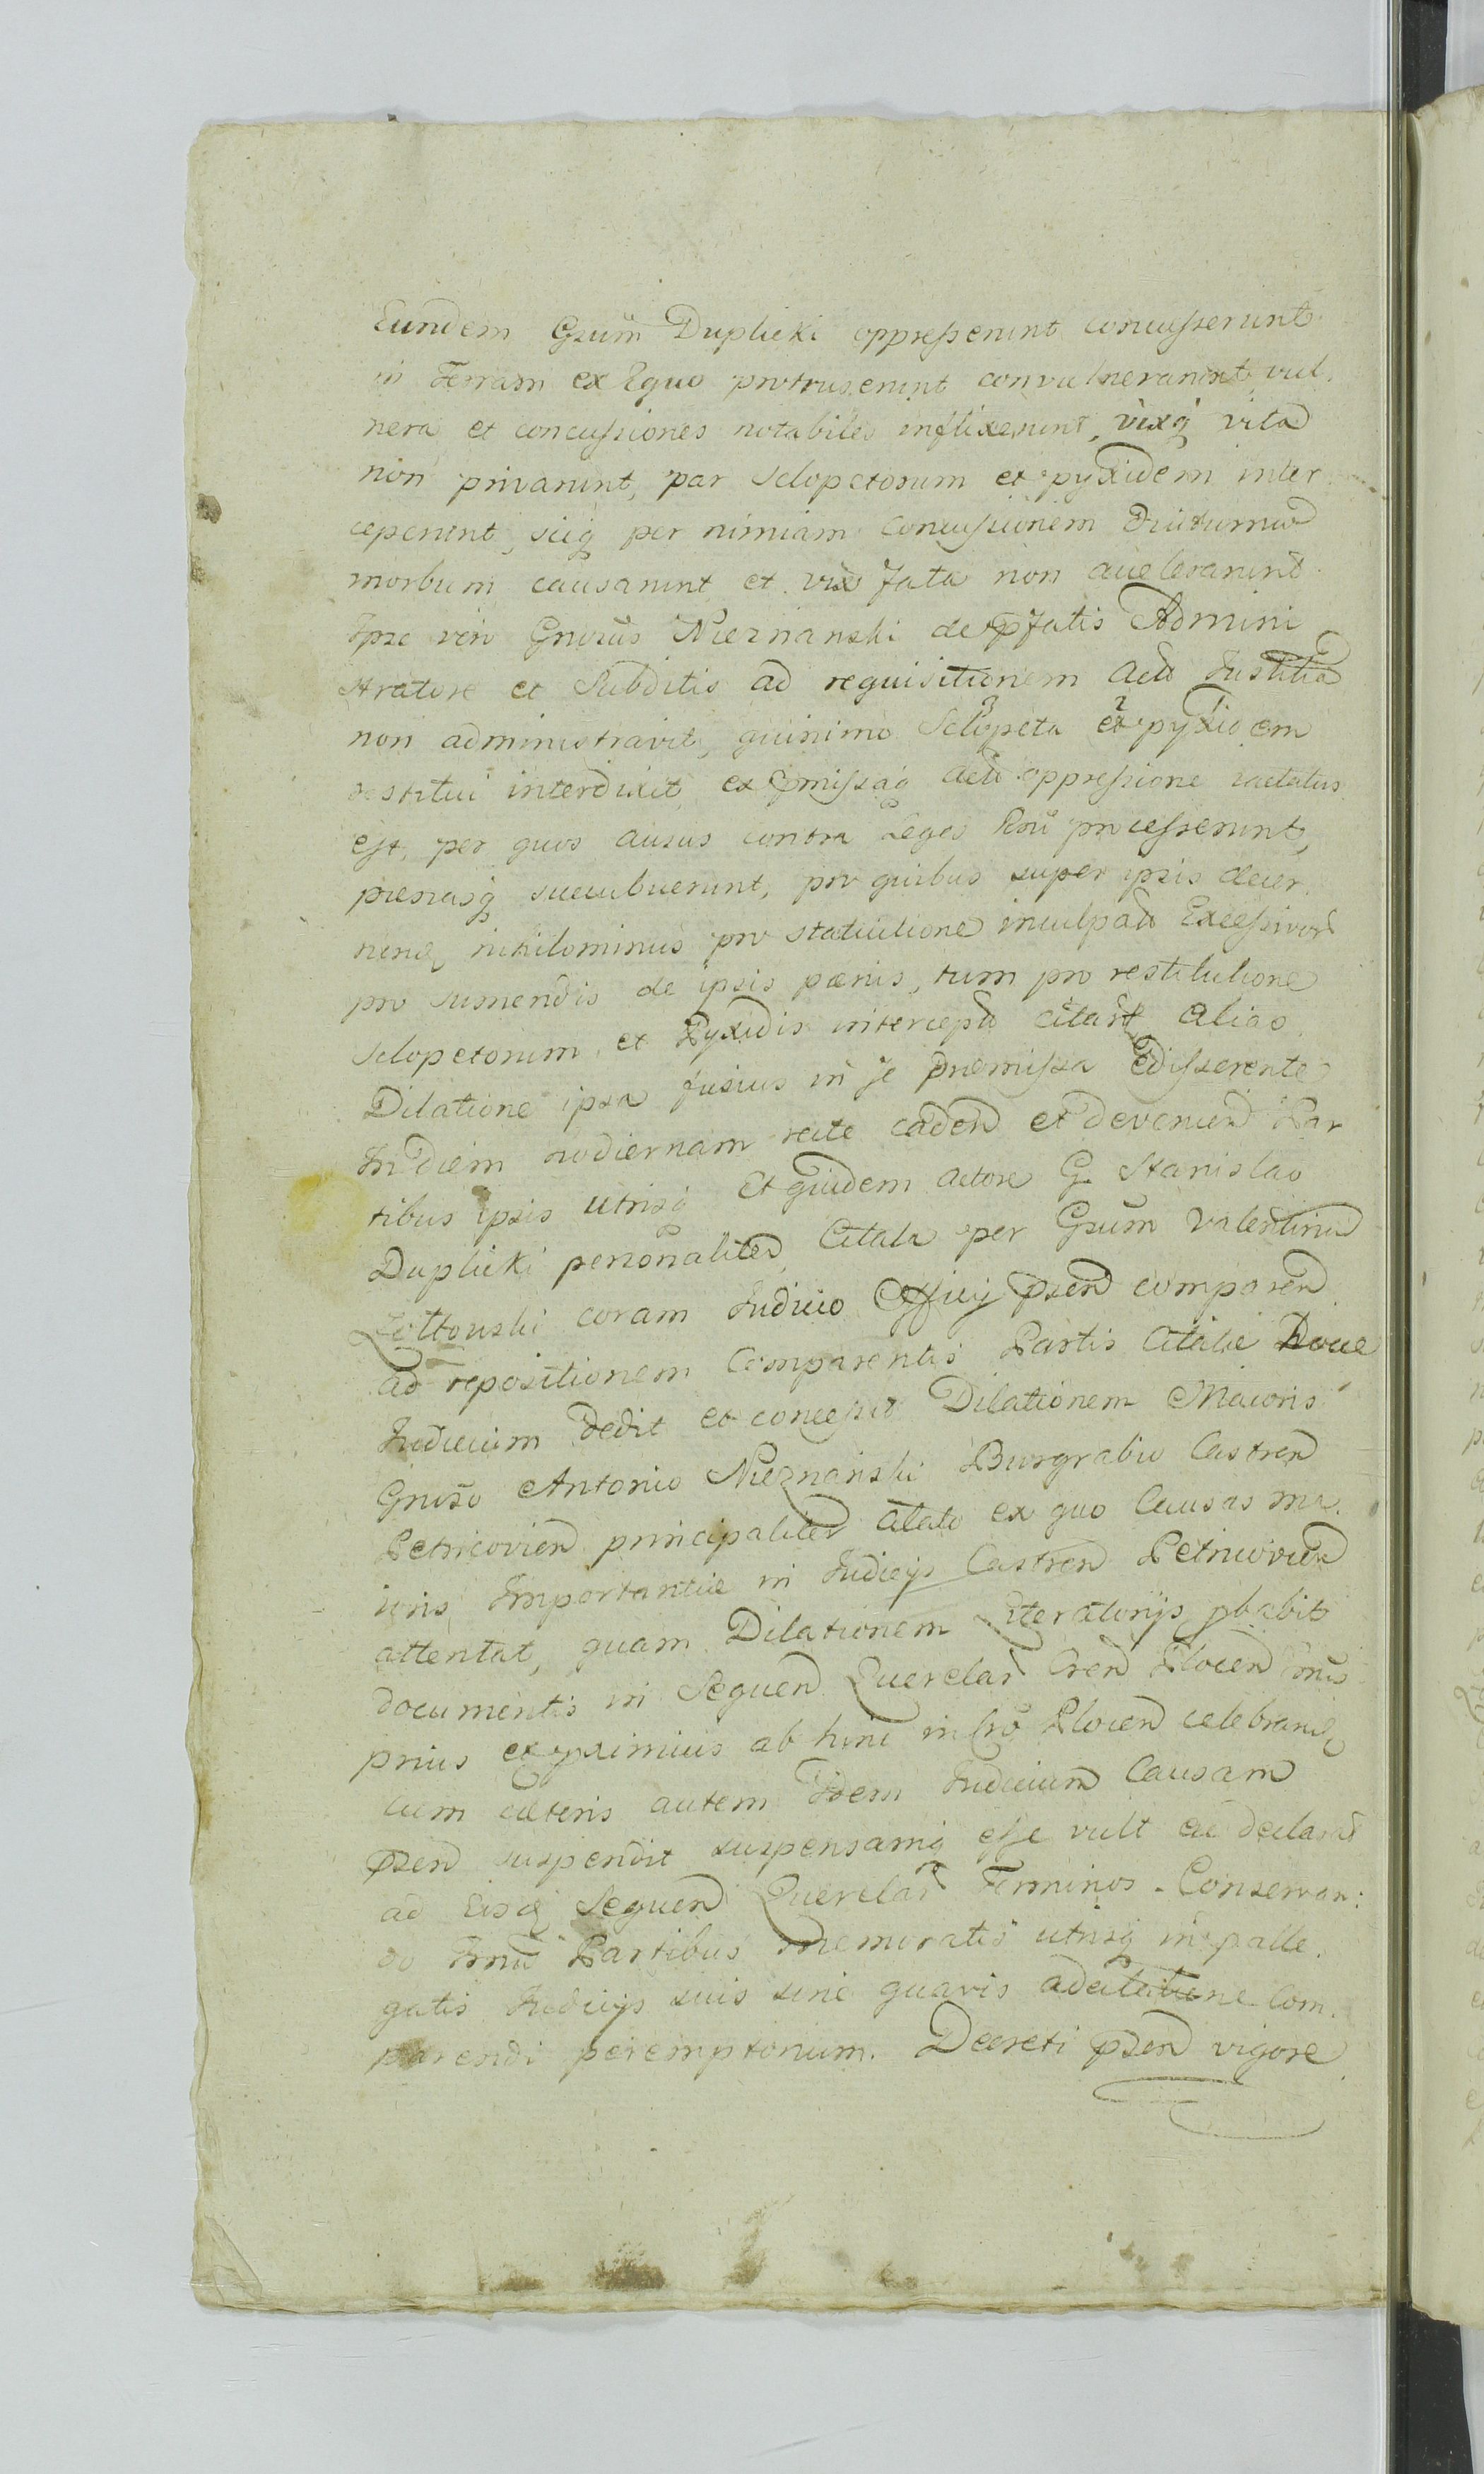 Eundem Gsum Duplicki oppresserunt concusserunt
in Terram ex Equo protruserunt convulnerarunt, vul
nera et concussiones notabiles inflixerunt, vixq vita
non privarunt, par sclopetorum et pyxidem inter
ceperunt, sicq per nimiam concussionem diuturnū
morbum causarunt et vix fata non accelerarunt.
Ipse vero Gnosus Nieznanski de pfatis Admini
stratore et Subditis ad requisitionem Actõ Justitiã
non administravit, quinimo Sclopeta et pyxidem
restitui interdixit, ex pmissaq Actõ oppressione lactatus
est, per quos ausus contra Leges Rni processerunt,
pœnasq succubuerunt, pro quibus super ipsis decer
nend nihilominus pro statuitione inculpatõ Excessivorũ
pro sumendis de ipsis pœnis, tum pro restitutione
Sclopetorum et Pyxidis interceptõ citari alias
Dilatione ipsa fusius in se præmissa Edisserente
In diem hodiernam recte cadeñ et deveneñ Par
tibus ipsis utrisq Et quidem Actore G Stanislao
Duplicki personaliter, Citata per Gsum Valentinũ
Zołtowski coram Judicio Officij pseñ compareñ
ad repositionem Comparentis Partis Citatæ
Judicium dedit et concessit Dilationem Maioris
Gnoso Antonio Nieznanski Burgrabio Castreñ
Petricovieñ principaliter citato ex quo Causas ma
ioris Importantiæ in Judicijs Castreñ Petricovieñ
attentat, quam Dilationem Literatorijs pbabit
documentis in Sequeñ Querelarũ Creñ Ploceñ Tmis
prius et pximius ab hinc in Cro Ploceñ celebrand
cum cæteris autem Idem Judicium Causam
pseñ suspendit suspensamq esse vult ac declarat
ad Eosd Sequeñ Querelarũ Terminos. Conservan:
do Tmũ Partibus memoratis utrisq in palle
gatis Judicijs suis sine quavis adcitatione Com
parendi peremptorium. Decreti pseñ vigore